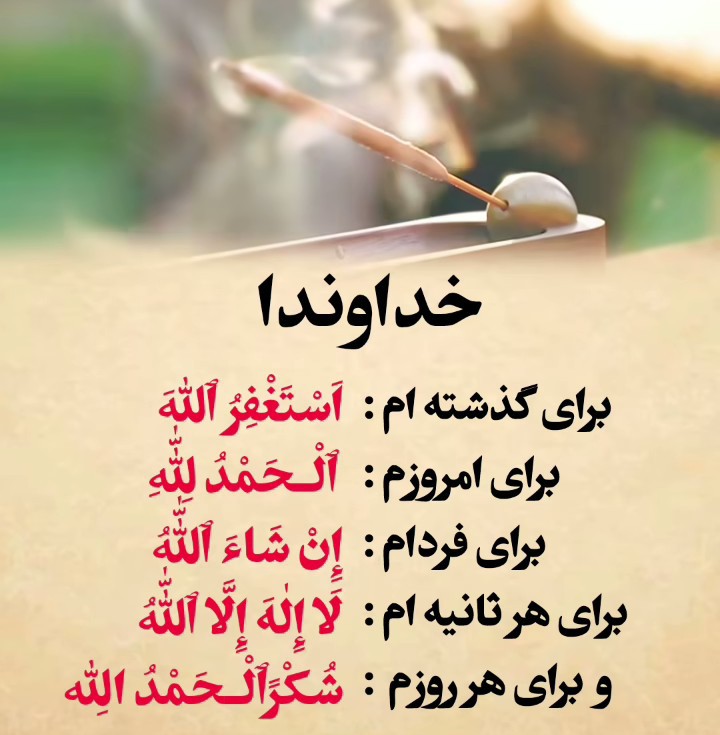 خداوندا
برای گذشته ام : اَسْتَغْفِرُ ٱللّٰهَ
برای امروزم : ٱلْـحَمْدُ لِلّٰهِ
برای فردام : إِنْ شَاءَ ٱللّٰهُ
برای هر ثانیه ام : لَا إِلٰهَ إِلَّا ٱللّٰهُ
و برای هر روزم : شُكْرًاٱلْـحَمْدُ الِلّه